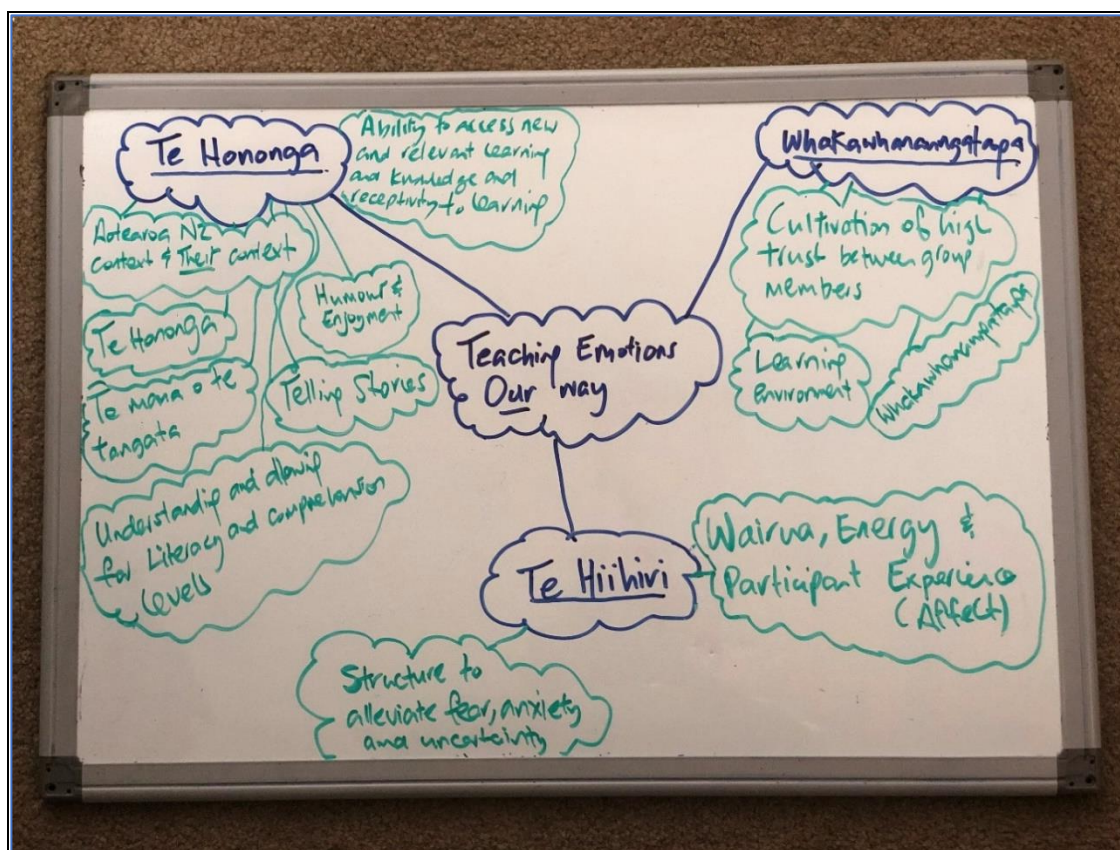 Te Hononga
Ability to access new
and relevant learning
and knowledge and
receptivity to learning
Aotearoa NZ
context & Their context
Te Hononga
Te mana o te
tangata
Humour &
Enjoyment
Telling Stories
Understanding and allowing
for Literacy and comprehension
levels
Teaching Emotions
Our way
Cultivation of high
trust between group
members
Learning
Environment
Te Hiihiri
Wairua, Energy &
Participant Experience
(Affect)
Structure to
alleviate fear, anxiety
and uncertainty